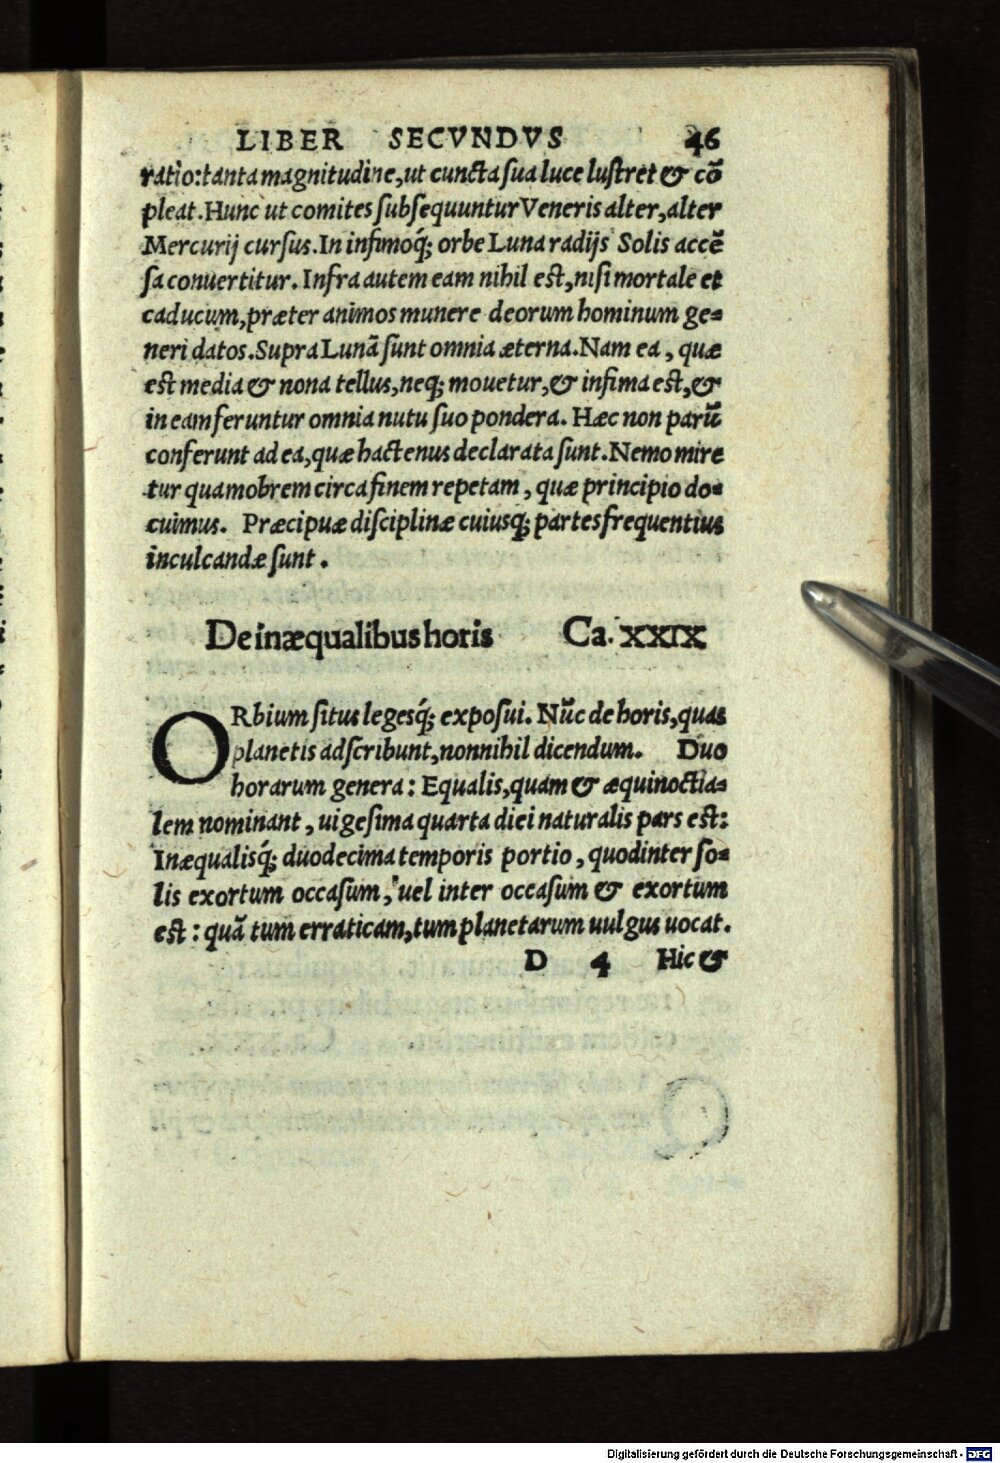 LIBER SECVNDVS 46
ratio:tanta magnitudine,ut cuncta sua luce lustret & cō
pleat.Hunc ut comites subsequuntur Veneris alter,alter
Mercurij cursus.In infimoq́; orbe Luna radijs Solis accē
sa conuertitur. Infra autem eam nihil est,nisi mortale et
caducum,præter animos munere deorum hominum ge=
neri datos.Supra Lunā sunt omnia æterna.Nam ea, quæ
est media & nona tellus,neq; mouetur,& infima est,&
in eam feruntur omnia nutu suo pondera. Hæc non parū
conferunt ad ea,quæ hactenus declarata sunt.Nemo mire
tur quamobrem circa finem repetam, quæ principio do=
cuimus. Præcipuæ disciplinæ cuiusq; partes frequentius
inculcandæ sunt.
De inæqualibus horis Ca. XXIX
ORbium situs legesq́; exposui. Nūc de horis,quas
planetis adscribunt,nonnihil dicendum. Duo
horarum genera: Equalis,quam & æquinoctia=
lem nominant, uigesima quarta diei naturalis pars est:
Inæqualisq́; duodecima temporis portio, quod inter so=
lis exortum occasum, uel inter occasum & exortum
est: quā tum erraticam,tum planetarum uulgus uocat.
D 4 Hic &
Digitalisierung gefördert durch die Deutsche Forschungsgemeinschaft - DFG